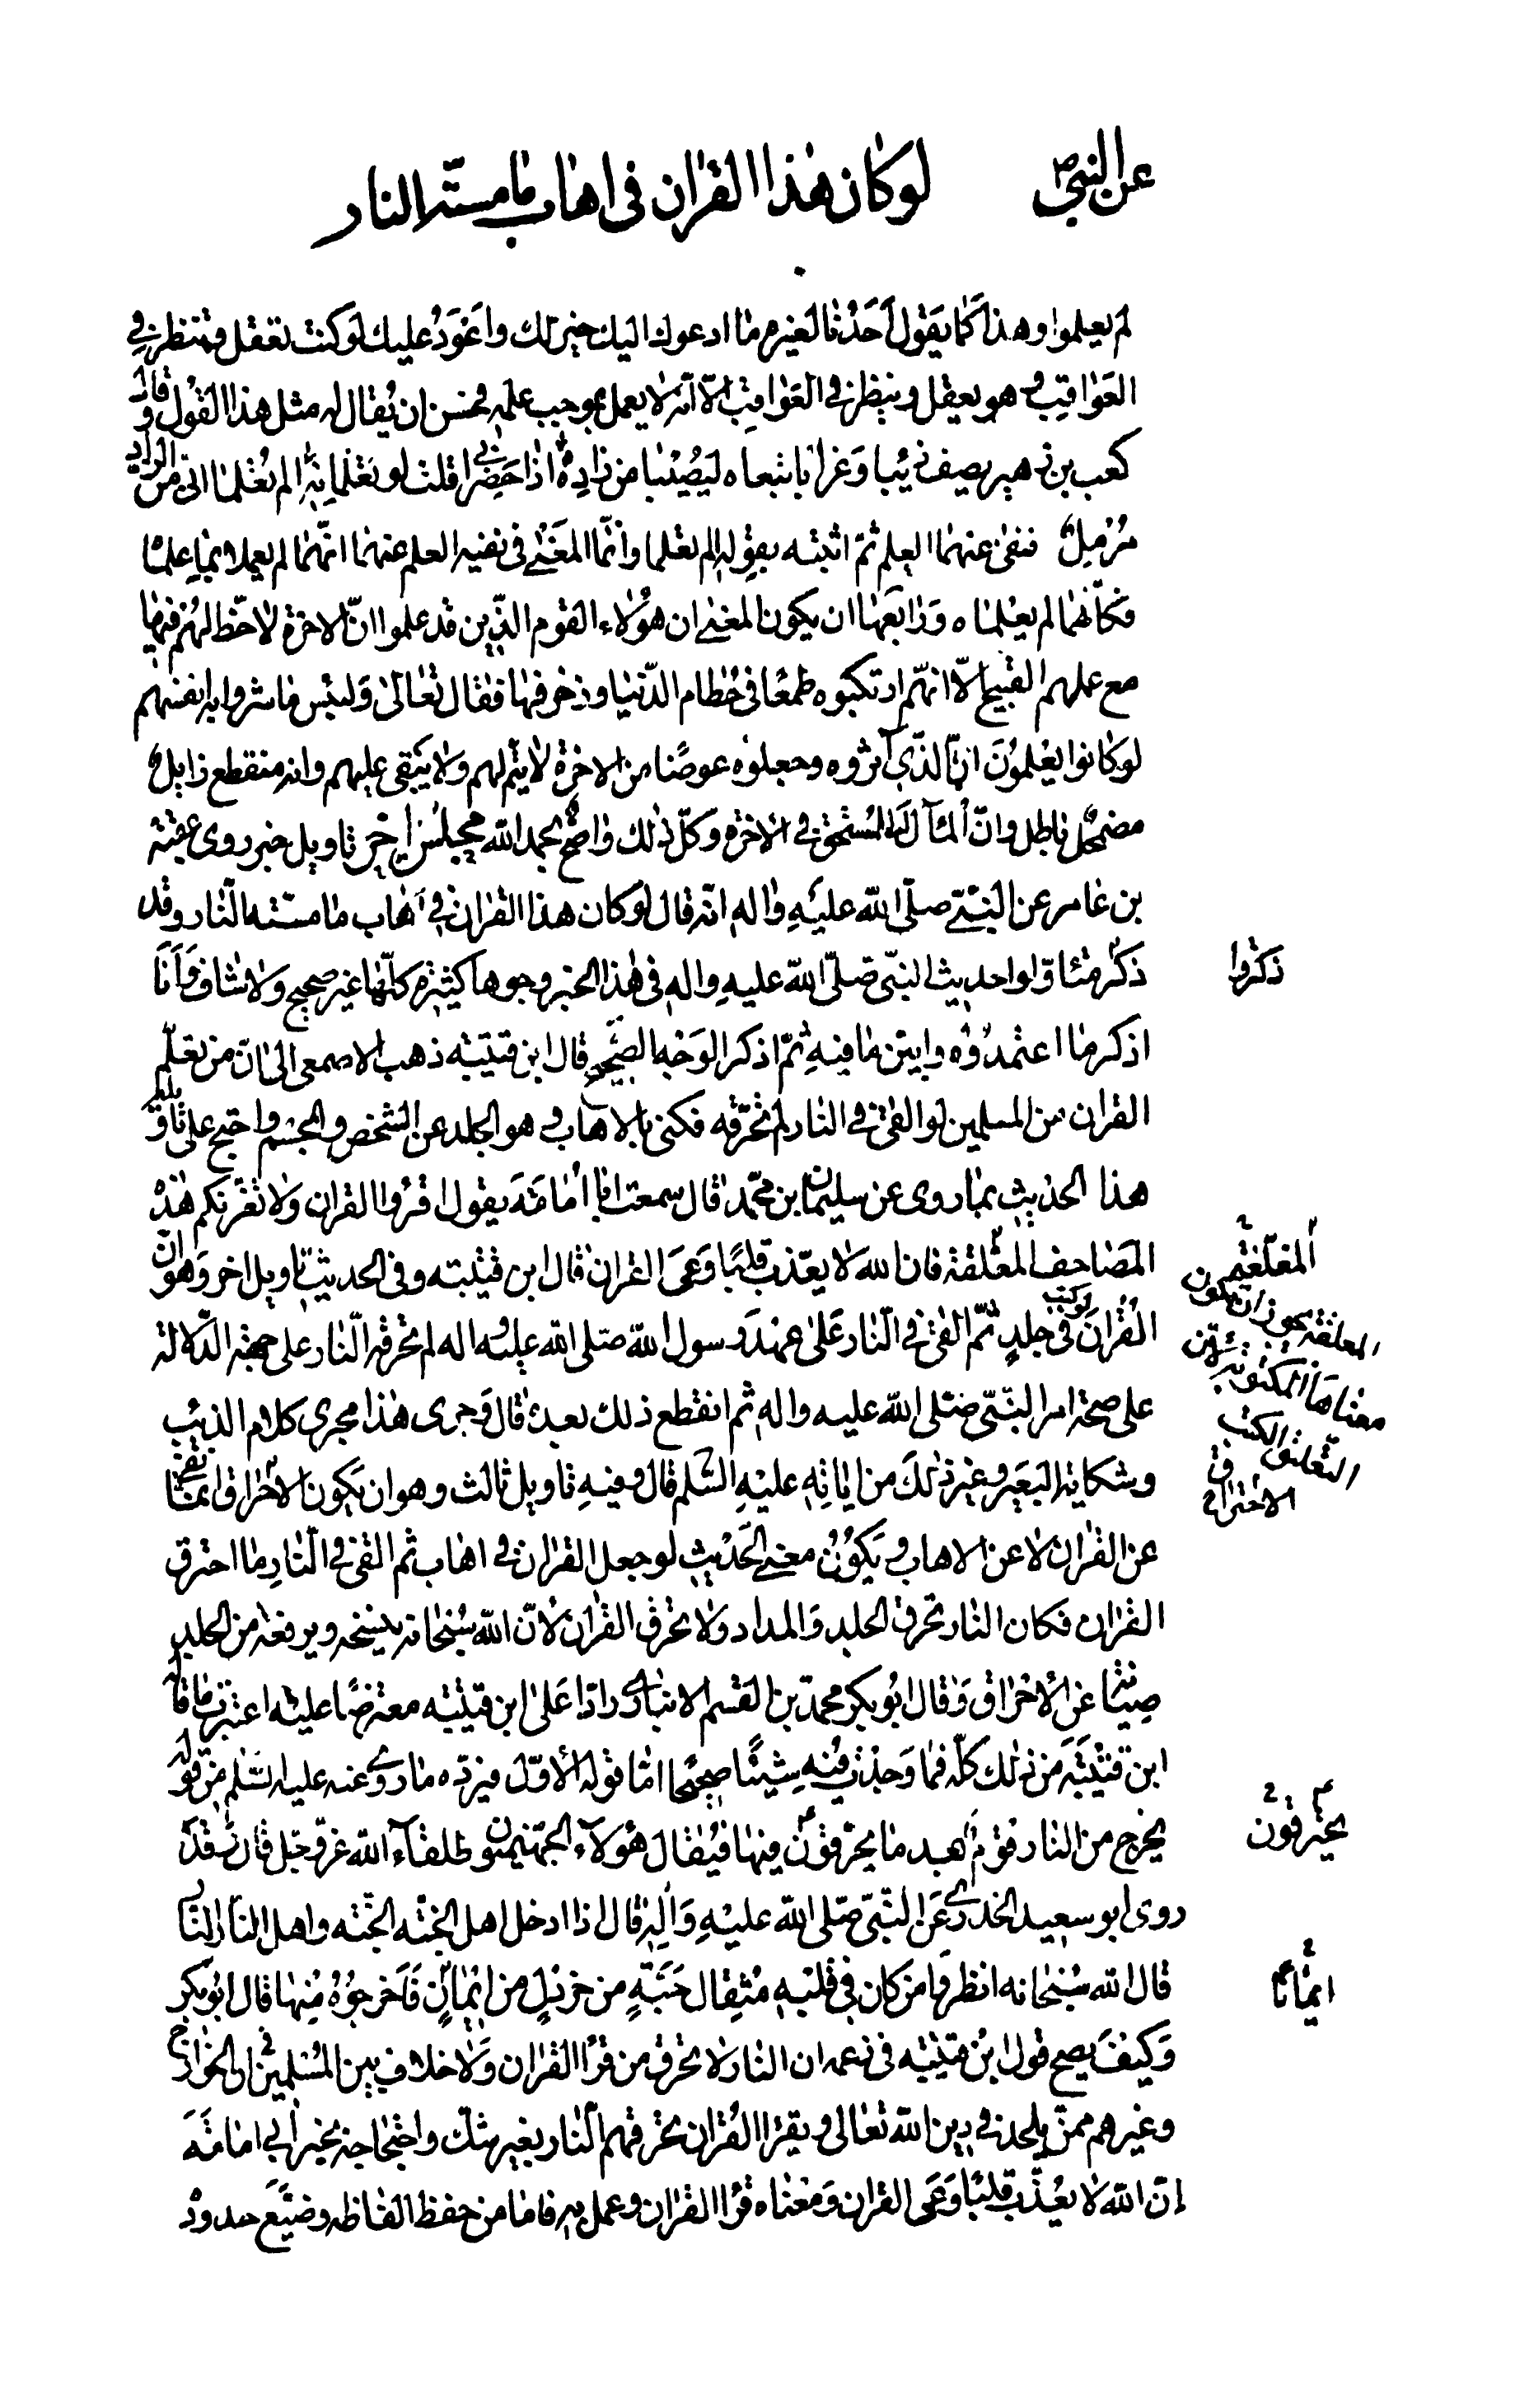 عن النبی ص لو كان هذا القران فی اهاب ما مسته النار
لم يعلموا وهذا كما يقول احدنا لغيره ما ادعوك اليك خير لك واعود عليك لو كنت تعقل وتنظر في
العواقب وهو يعقل وينظر في العواقب الا انه لا يعمل بموجب علمه فحسن ان يقال له مثل هذا القول وقال
كعب بن زهير يصف ذئبا وغرابا تبعاه ليصيبا من زاده اذا حضرانی قلت لو تعلمانه الم تعلما انی من الزاد
مرمل فنفى عنهما العلم ثم اثبته بقوله الم تعلما وانما المعنى فى نفيه العلم عنهما انهما لم يعملا بما علما
فكانهما لم يعلماه ورابعها ان يكون المعنى ان هؤلاء القوم الذين قد علموا ان الاخرة لا حظ لهم فيها
مع عملهم القبيح الا انهم ارتكبوه طمعا فى حطام الدنيا وزخرفها فقال تعالى ولبئس ما شروا به انفسهم
لو كانوا يعلمون ان الذي آثروه وجعلوه عوضا من الاخرة لا يتم لهم ولا يبقى عليهم وانه منقطع زايل
مضمحل باطل وان المآل الى المستحق في الاخرة وكل ذلك واضح بحمد الله مجلس اخر تاويل خبر روى عقبة
بن عامر عن النبي صلى الله عليه واله انه قال لو كان هذا القران في اهاب ما مسته النار وقد
ذكر متاولوا حديث النبي صلى الله عليه واله فى هذا الخبر وجوها كثيرة كلها غير صحيح ولا شاف وانا
ذكروا
اذكر ما اعتمدوه وابين ما فيه ثم اذكر الوجه الصحيح قال ابن قتيبة ذهب الاصمعى الى ان من تعلم
القران من المسلمين لو القى في النار لم تحرقه فكنى بالاهاب وهو الجلد عن الشخص والجسم واحتج على تاويل
هذا الحديث بما روى عن سليمان ابن محمد قال سمعت ابا امامة يقول اقرؤا القران ولا تغرنكم هذه
المصاحف المعلقة فان الله لا يعذب قلبا وعى القران قال ابن قتيبته وفى الحديث تاويل اخر وهو ان
القران لو كتب فى جلد ثم القى في النار على عهد رسول الله صلى الله عليه واله لم تحرقه النار على جهة الدلالة
المعلقة يجوز ان يكون
معناها المكتوبة لان
التعليق الكتب
على صحة امر النبي صلى الله عليه واله ثم انقطع ذلك بعده قال وجرى هذا مجرى كلام الذئب
وشكاية البعير وغير ذلك من اياته عليه السلم قال وفيه تاويل ثالث وهو ان يكون الاحراق انما نفى
الاحتراق
عن القران لا عن الاهاب ويكون معنى الحديث لو جعل القران فى اهاب ثم القى في النار ما احترق
القران فكان النار تحرق الجلد والمداد ولا تحرق القران لان الله سبحانه ينسخه ويرفعه من الجلد
صيانة عن الاحراق وقال ابو بكر محمد بن القسم الانبارى رادا على ابن قتيبته معترضا عليه اعتبرت ما قاله
ابن قتيبة من ذلك كله فما وجدت فيه شيئا صحيحا اما قوله الاول فيرده ما روى عنه عليه السلم من قوله
يخرج من النار قوم بعد ما يحرقون فيها فيقال هؤلآء الجهنميون طلقآء الله عز وجل قال وقد
يحترقون
روى ابو سعيد الخدرى عن النبى صلى الله عليه واله قال اذا ادخل اهل الجنة الجنة واهل النار النار
قال الله سبحانه انظروا من كان فى قلبه مثقال حبة من خردل من ايمان فاخرجوه منها قال ابو بكر
ايمانا
وكيف يصح قول ابن قتيبه فى زعمه ان النار لا تحرق من قرأ القران ولا خلاف بين المسلمين فى ان الخوارج
وغيرهم ممن يلحد فى دين الله تعالى ويقرأ القران تحرقهم النار بغير شك واحتجاجه بخبر ابي امامة
ان الله لا يعذب قلبا وعى القران ومعناه قرأ القران وعمل به فاما من حفظ الفاظه وضيع حدوده